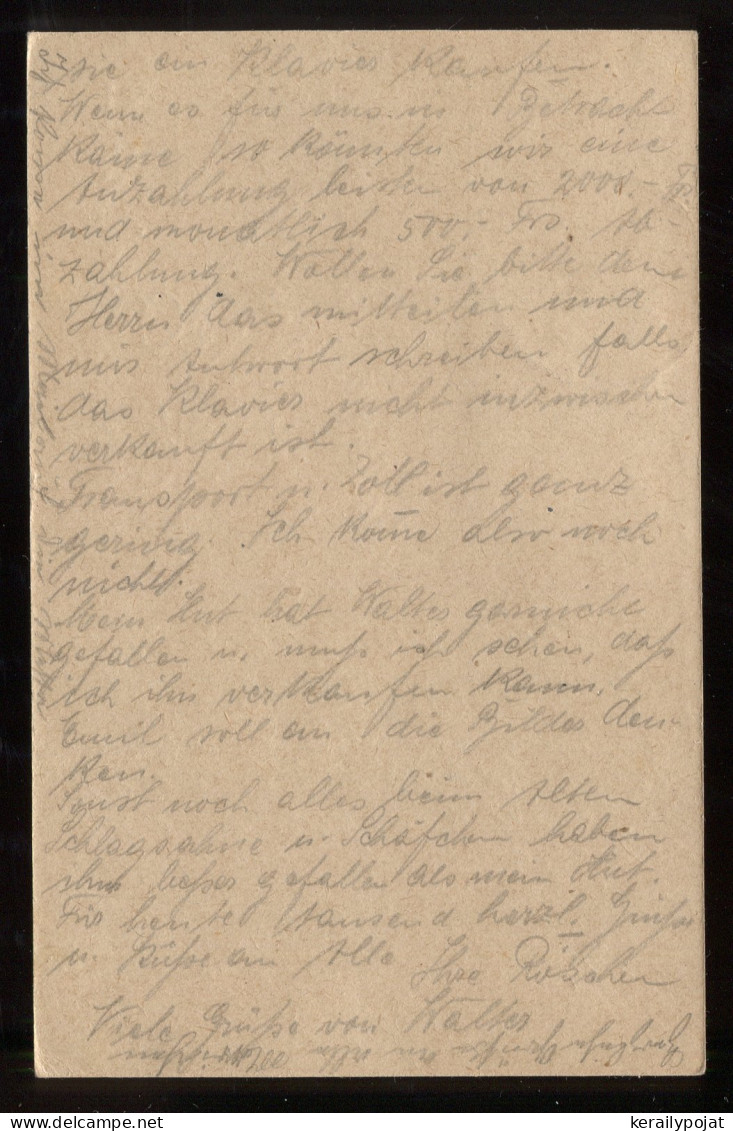 sie ein Klavier kaufen.
Wenn es für uns in Betracht
käme so könnten wir eine
Anzahlung leisten von 2000,- Frs
und monatlich 500,- Frs. Ab-
zahlung. Wollen Sie bitte dem
Herrn das mitteilen und
uns Antwort schreiben falls
das Klavier nicht inzwischen
verkauft ist.
Transport u. Zoll ist ganz
gering. Ich kome also noch
nicht.
Mein Hut hat Walter garnicht
gefallen u. muß ich sehen, daß
ich ihn verkaufen kann.
Emil soll an die Bilder den-
ken.
Sonst noch alles beim Alten
Schlagsahne u. Schäfchen haben
ihm beßer gefallen als mein Hut.
Für heute tausend herzl. Grüße
u. Küße an Alle Ihre Röschen
Viele Grüße von Walter